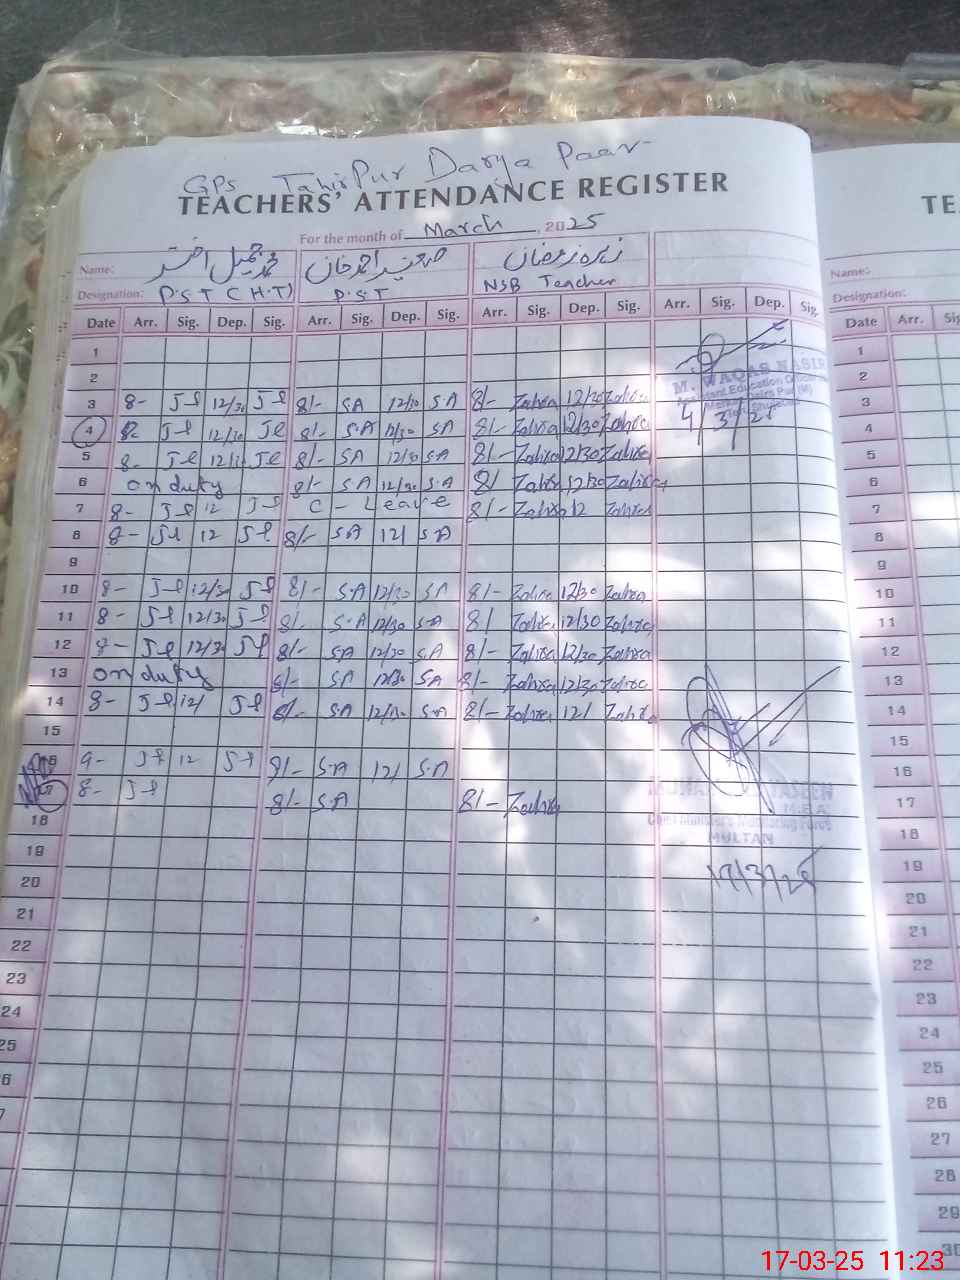 GPS Tahir Pur Darya Paar
TEACHERS' ATTENDANCE REGISTER
For the month of March, 2025
Name: محمد جمیل اختر احمد خان زہرہ رمضان
Designation: P.S.T (H.T) P.S.T NSB Teacher
Date Arr. Sig. Dep. Sig. Arr. Sig. Dep. Sig. Arr. Sig. Dep. Sig. Arr. Sig. Dep. Sig.
1
2
M. WAQAS NASIR
Assistant Education Officer
3 8- Jl 12/30 Jl 8/- S.A 12/30 S.A 8/- Zahra 12/30 Zahra
4 8- Jl 12/30 Jl 8/- S.A 12/30 S.A 8/- Zahra 12/30 Zahra 4/3/25
5 8- Jl 12/30 Jl 8/- S.A 12/30 S.A 8/- Zahra 12/30 Zahra
6 on duty 8/- S.A 12/30 S.A 8/ Zahra 12/30 Zahra
7 8- Jl 12 Jl C - Leave 8/- Zahra 12 Zahra
8 8- Jl 12 Jl 8/- S.A 12/ S.A
9
10 8- Jl 12/30 Jl 8/- S.A 12/30 S.A 8/- Zahra 12/30 Zahra
11 8- Jl 12/30 Jl 8/- S.A 12/30 S.A 8/ Zahra 12/30 Zahra
12 8- Jl 12/30 Jl 8/- S.A 12/30 S.A 8/- Zahra 12/30 Zahra
13 on duty 8/- S.A 12/30 S.A 8/- Zahra 12/30 Zahra
14 8- Jl 12/ Jl 8/- S.A 12/30 S.A 8/- Zahra 12/ Zahra
15
9- Jl 12 Jl 9/- S.A 12/ S.A
8- Jl 8/- S.A 8/- Zahra
M.E.A
Chief Minister's Monitoring Force
MULTAN
18
19 17/3/25
20
21
22
23
24
25
TE
Name:
Designation:
Date Arr. Sig
1
2
3
4
5
6
7
8
9
10
11
12
13
14
15
16
17
18
19
20
21
22
23
24
25
26
27
28
29
30
17-03-25 11:23